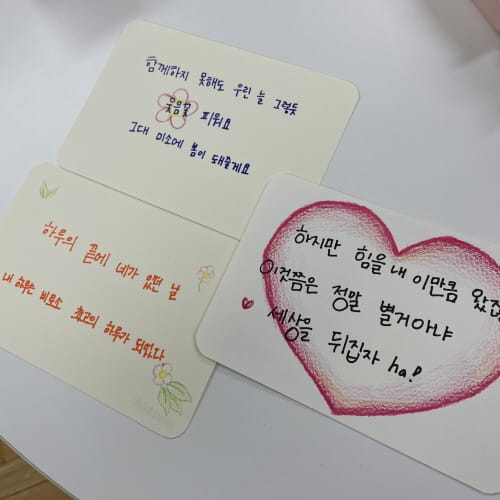 함께하지 못해도 우린 늘 그렇듯
웃음꽃 피워요
그대 미소에 봄이 돼줄게요
하루의 끝에 네가 있던 날
내 하루는 비로소 최고의 하루가 되었다.
하지만 힘을 내 이만큼 왔잖
이것쯤은 정말 별거아냐
세상을 뒤집자 ha!